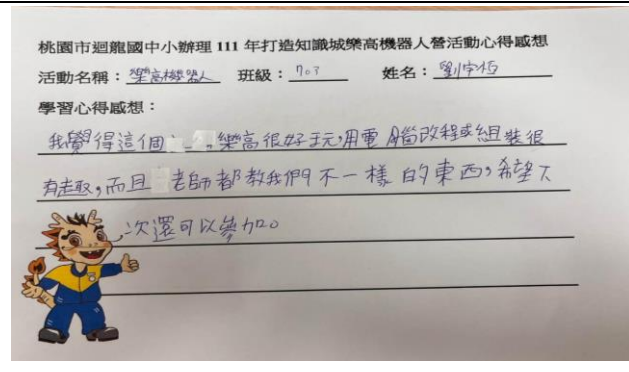 桃園市迴龍國中小辦理 111 年打造知識城樂高機器人營活動心得感想
活動名稱：樂高機器人 班級：703 姓名：劉宇恒
學習心得感想：
我覺得這個 樂高很好玩，用電腦改程或組裝很
有趣，而且 老師都教我們不一樣的東西，希望下
次還可以參加。